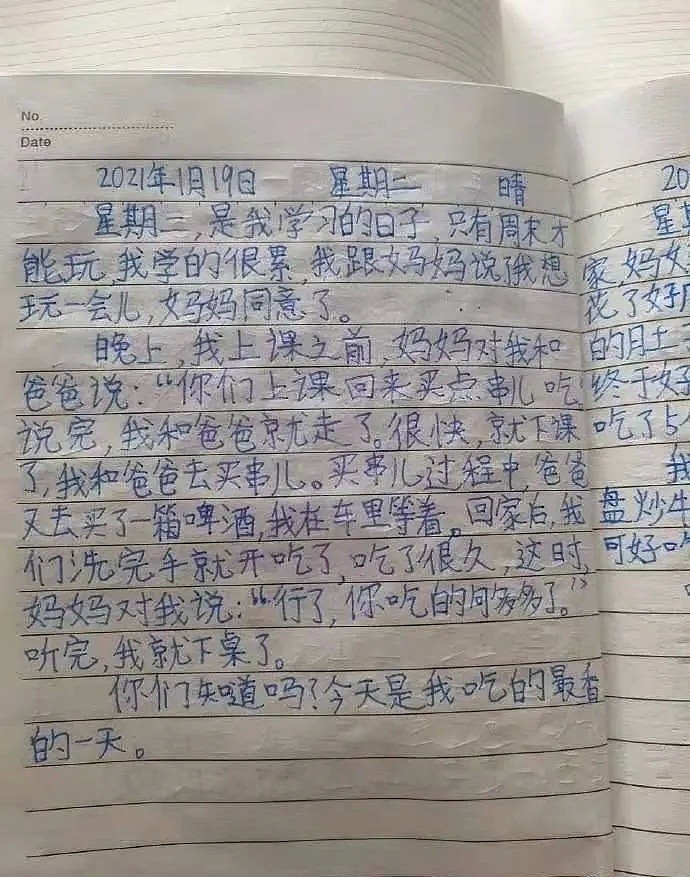 No.
Date
2021年1月19日 星期二 晴
星期二,是我学习的日子,只有周末才
能玩,我学的很累,我跟妈妈说了我想
玩一会儿,妈妈同意了。
晚上,我上课之前,妈妈对我和
爸爸说:“你们上课回来买点串儿吃”
说完,我和爸爸就走了。很快,就下课
了,我和爸爸去买串儿。买串儿过程中,爸爸
又去买了一箱啤酒,我在车里等着。回家后,我
们洗完手就开吃了,吃了很久,这时,
妈妈对我说:“行了,你吃的够多了。”
听完,我就下桌了。
你们知道吗?今天是我吃的最香
的一天。
20
星期
家,妈妈
花了好
的月土
终于好
吃了5
我
盘炒牛
可好吃